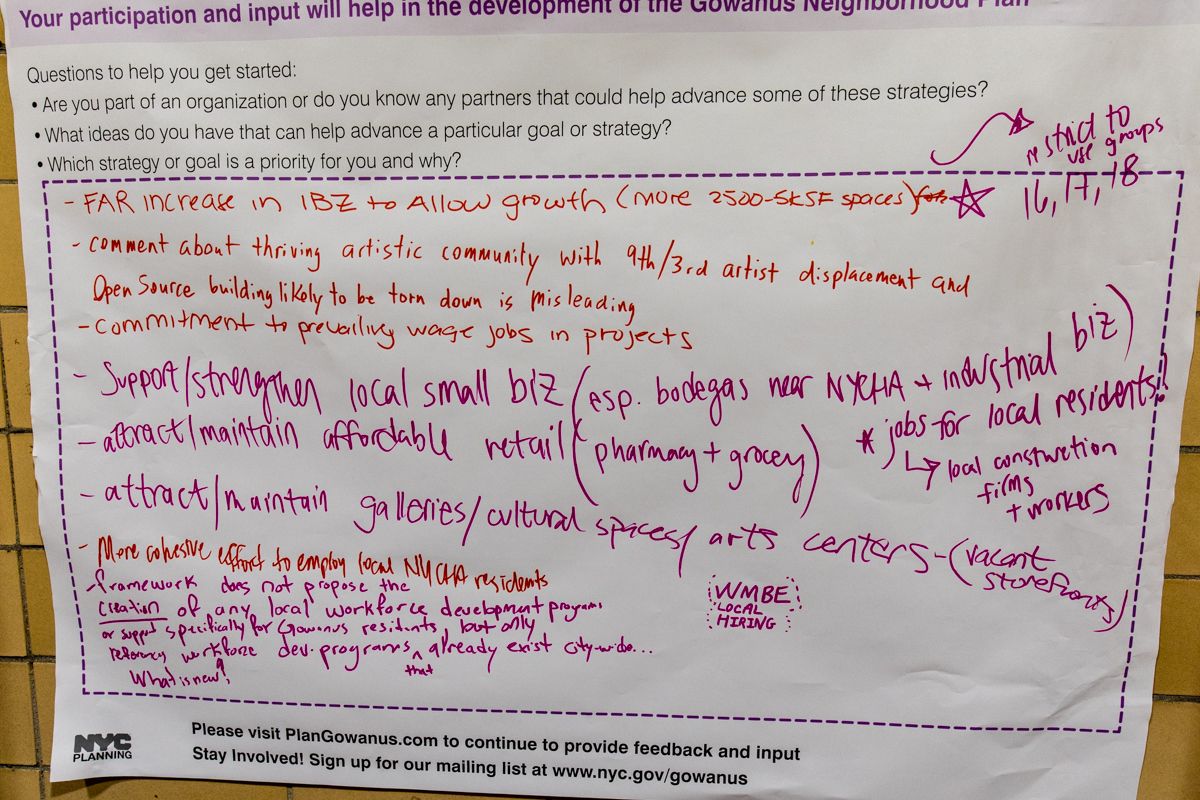 Your participation and input will help in the development of the Gowanus Neighborhood Plan
Questions to help you get started:
• Are you part of an organization or do you know any partners that could help advance some of these strategies?
• What ideas do you have that can help advance a particular goal or strategy?
• Which strategy or goal is a priority for you and why?
restrict to
use groups
16, 17, 18
- FAR increase in IBZ to Allow growth (more 2500-5KSF spaces)
- comment about thriving artistic community with 9th/3rd artist displacement and
Open Source building likely to be torn down is misleading
- commitment to prevailing wage jobs in projects
- Support/strengthen local small biz (esp. bodegas near NYCHA + industrial biz)
- attract/maintain affordable retail (pharmacy + grocey)
* jobs for local residents!!
↳ local construction
firms
+ workers
- attract/maintain galleries/cultural spaces/arts centers - (vacant
storefronts)
- More cohesive effort to employ local NYCHA residents
- framework does not propose the
creation of any local workforce development programs
or support specifically for Gowanus residents, but only
workforce dev. programs ^ already exist city-wide...
that
What is new?
WMBE
LOCAL
HIRING
NYC
PLANNING
Please visit PlanGowanus.com to continue to provide feedback and input
Stay Involved! Sign up for our mailing list at www.nyc.gov/gowanus